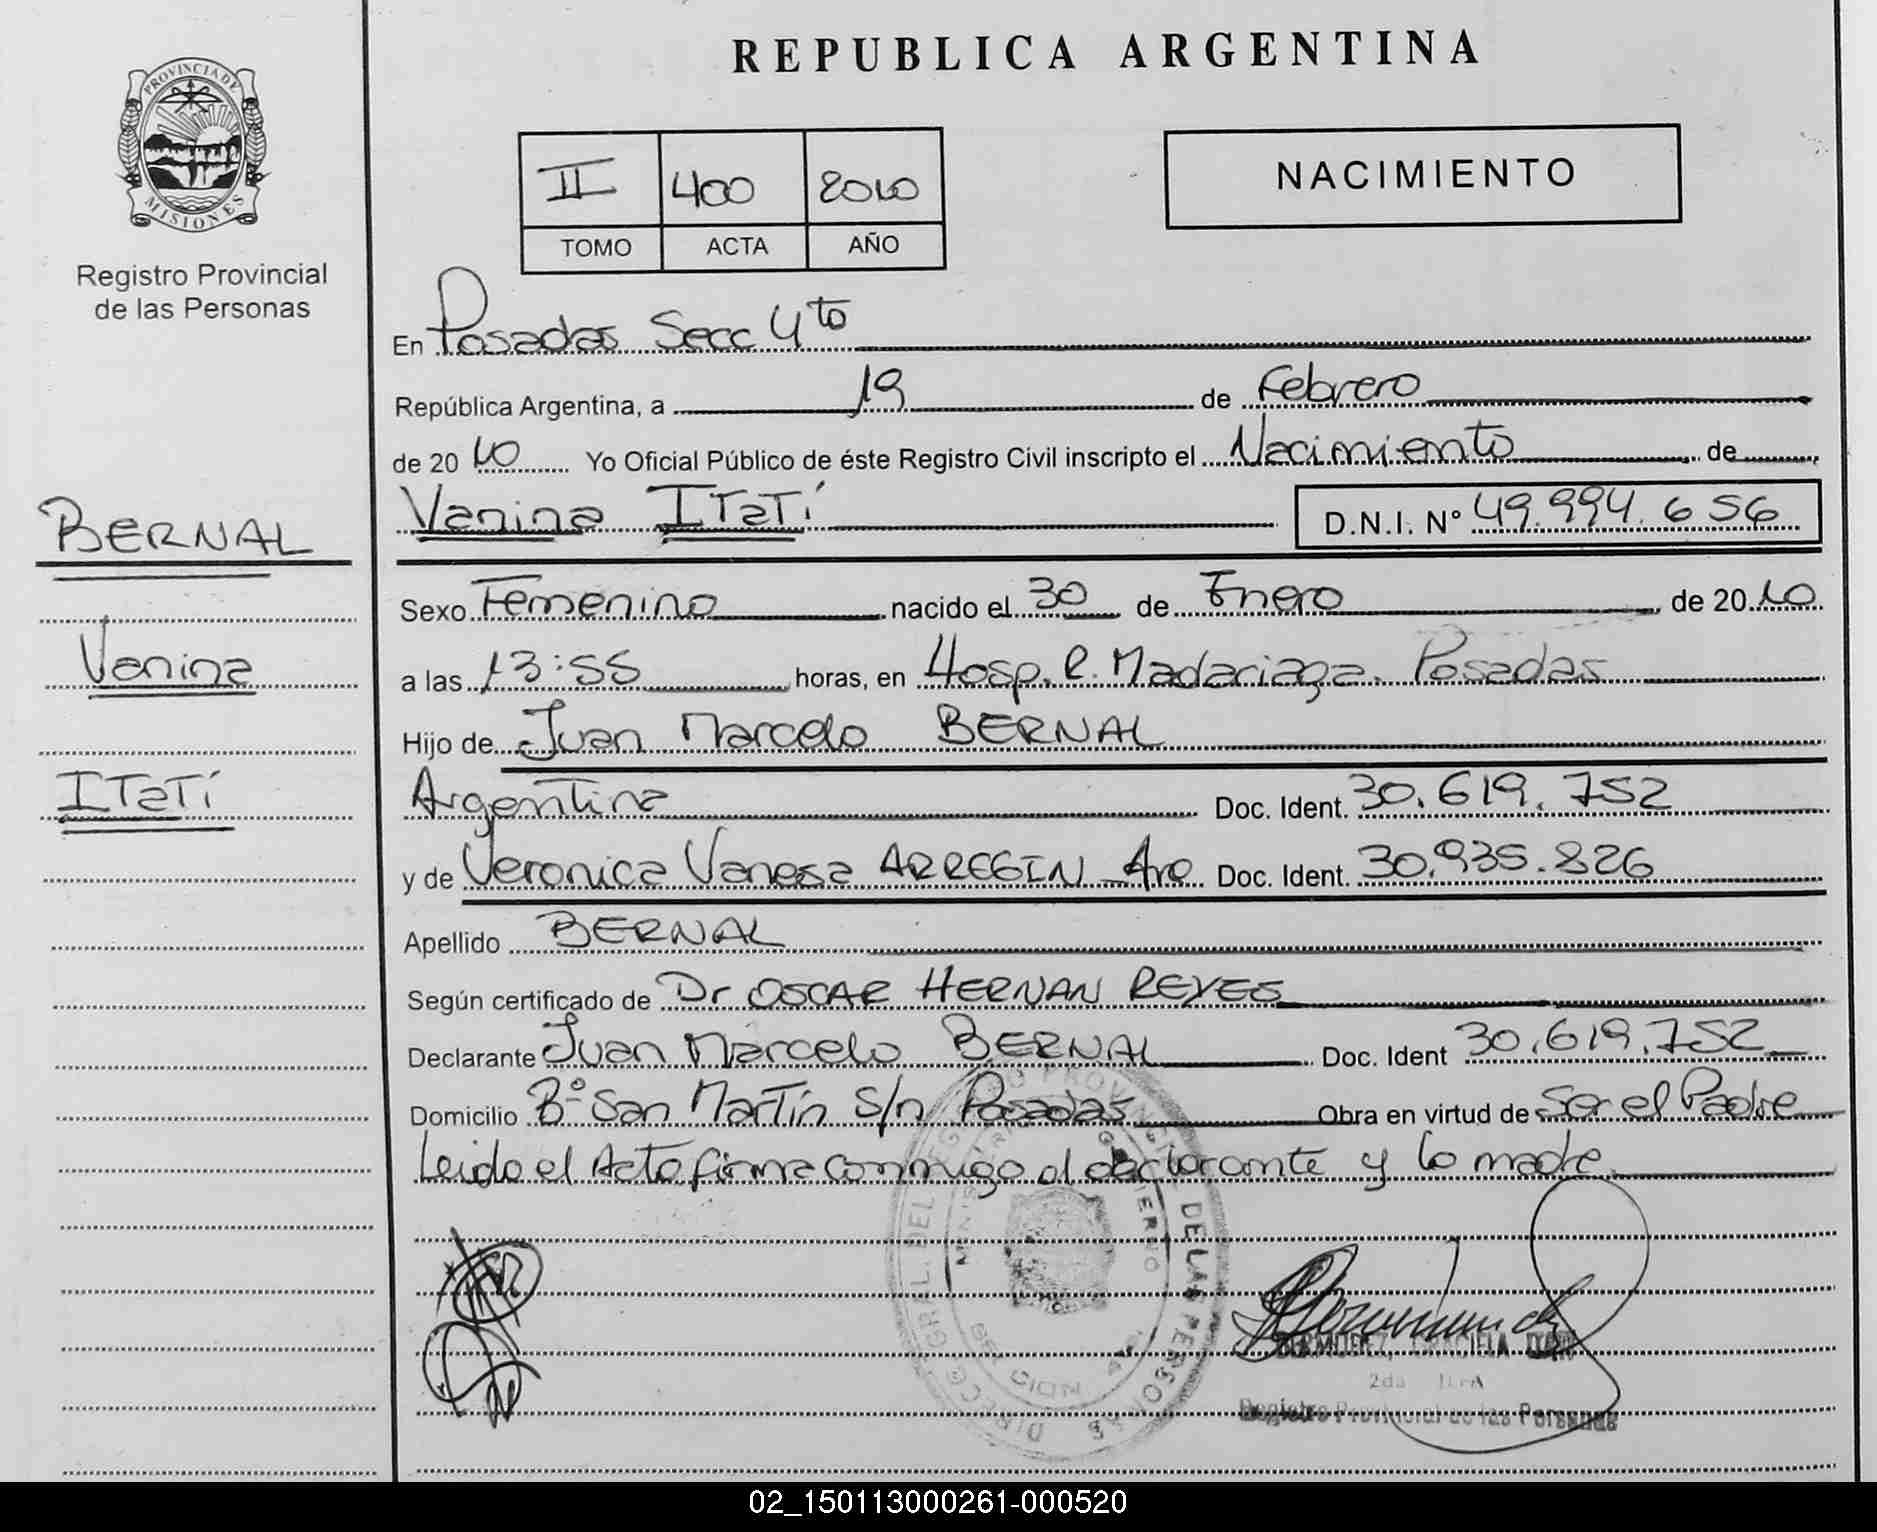 REPUBLICA ARGENTINA
PROVINCIA DE
MISIONES
Registro Provincial
de las Personas
II 400 2010
TOMO ACTA AÑO
NACIMIENTO
En Posadas Secc 4to
República Argentina, a 19 de Febrero
de 20 10 Yo Oficial Público de éste Registro Civil inscripto el Nacimiento de
Vanina ITaTí D.N.I. N° 49.994.656
BERNAL
Vanina
ITaTí
Sexo Femenino nacido el 30 de Enero de 20 10
a las 13:55 horas, en Hosp. R. Madariaga. Posadas
Hijo de Juan Marcelo BERNAL
Argentina Doc. Ident. 30.619.752
y de Veronica Vanesa ARREGIN Arg Doc. Ident. 30.935.826
Apellido BERNAL
Según certificado de Dr OSCAR HERNAN REYES
Declarante Juan Marcelo BERNAL Doc. Ident 30.619.752
Domicilio Bº San Martín S/n Posadas Obra en virtud de Ser el Padre
Leido el Acta firma conmigo el declarante y la madre
BERMUDEZ, GRACIELA
Registro Provincial de las Personas
02_150113000261-000520